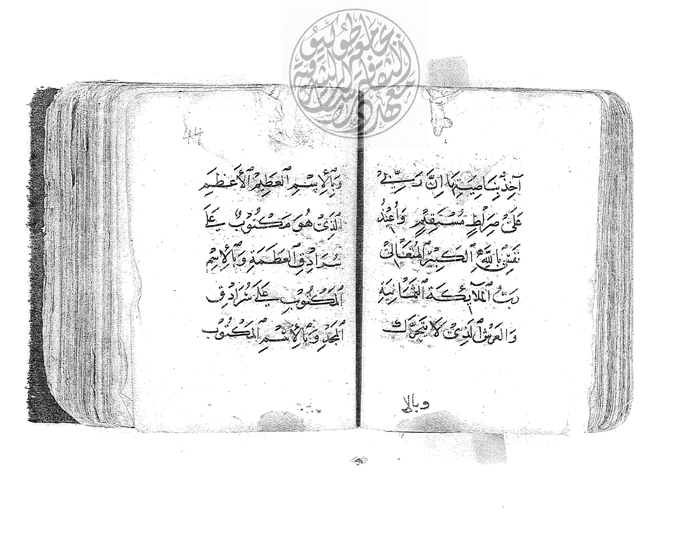 آخِذٌ بِنَاصِيَتِهَا اِنَّ رَبِّيْ
عَلَىٰ صِرَاطٍ مُسْتَقِيْمٍ وَاُعِيْذُ
نَفْسِيْ بِاللّٰهِ الْكَبِيْرِ الْمُتَعَالِ
رَبِّ الْمَلَآئِكَةِ الثَّمَانِيَةِ
وَالْعَرْشِ الَّذِيْ لَا يَتَحَرَّكُ
وبالا
44
وَبِالْاِسْمِ الْعَظِيْمِ الْاَعْظَمِ
الَّذِيْ هُوَ مَكْتُوْبٌ عَلَى
سُرَادِقِ الْعَظَمَةِ وَبِالْاِسْمِ
الْمَكْتُوْبِ عَلَى سُرَادِقِ
الْمَجْدِ وَبِالْاِسْمِ الْمَكْتُوْبِ